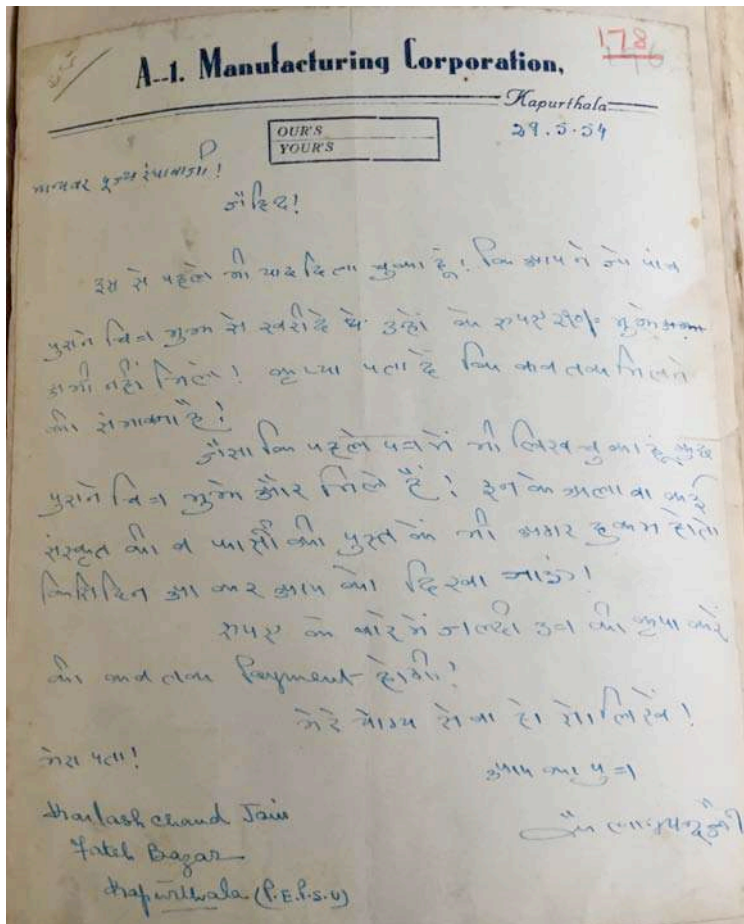 178
A--1. Manufacturing Corporation,
Kapurthala
OUR'S
YOUR'S
29.5.54
मान्यवर पूज्य रंधावाजी!
जैहिंद!
इस से पहले भी याद दिला चुका हूं! कि आप ने जो पांच
पुराने चित्र मुझ से खरीदे थे उन्हों के रुपए मुझे
अभी नहीं मिले! कृप्या पता दें कि कब तक मिलने
की संभावना है!
जैसा कि पहले पत्र में भी लिख चुका हूं कुछ
पुराने चित्र मुझे और मिले हैं! इन के अलावा कई
संस्कृत की व फार्सी की पुस्तकें भी अगर हुकम हो तो
किसि दिन आ कर आप को दिखा जाऊं!
रुपए के बारे में जल्दी उत्र की कृपा करें
की कब तक Payment होगी!
मेरे योग्य सेवा हो सो लिखें!
मेरा पता!
आप का पुत्र
Kailash chand Jain
Fateh Bazar
Kapurthala (P.E.P.S.U)